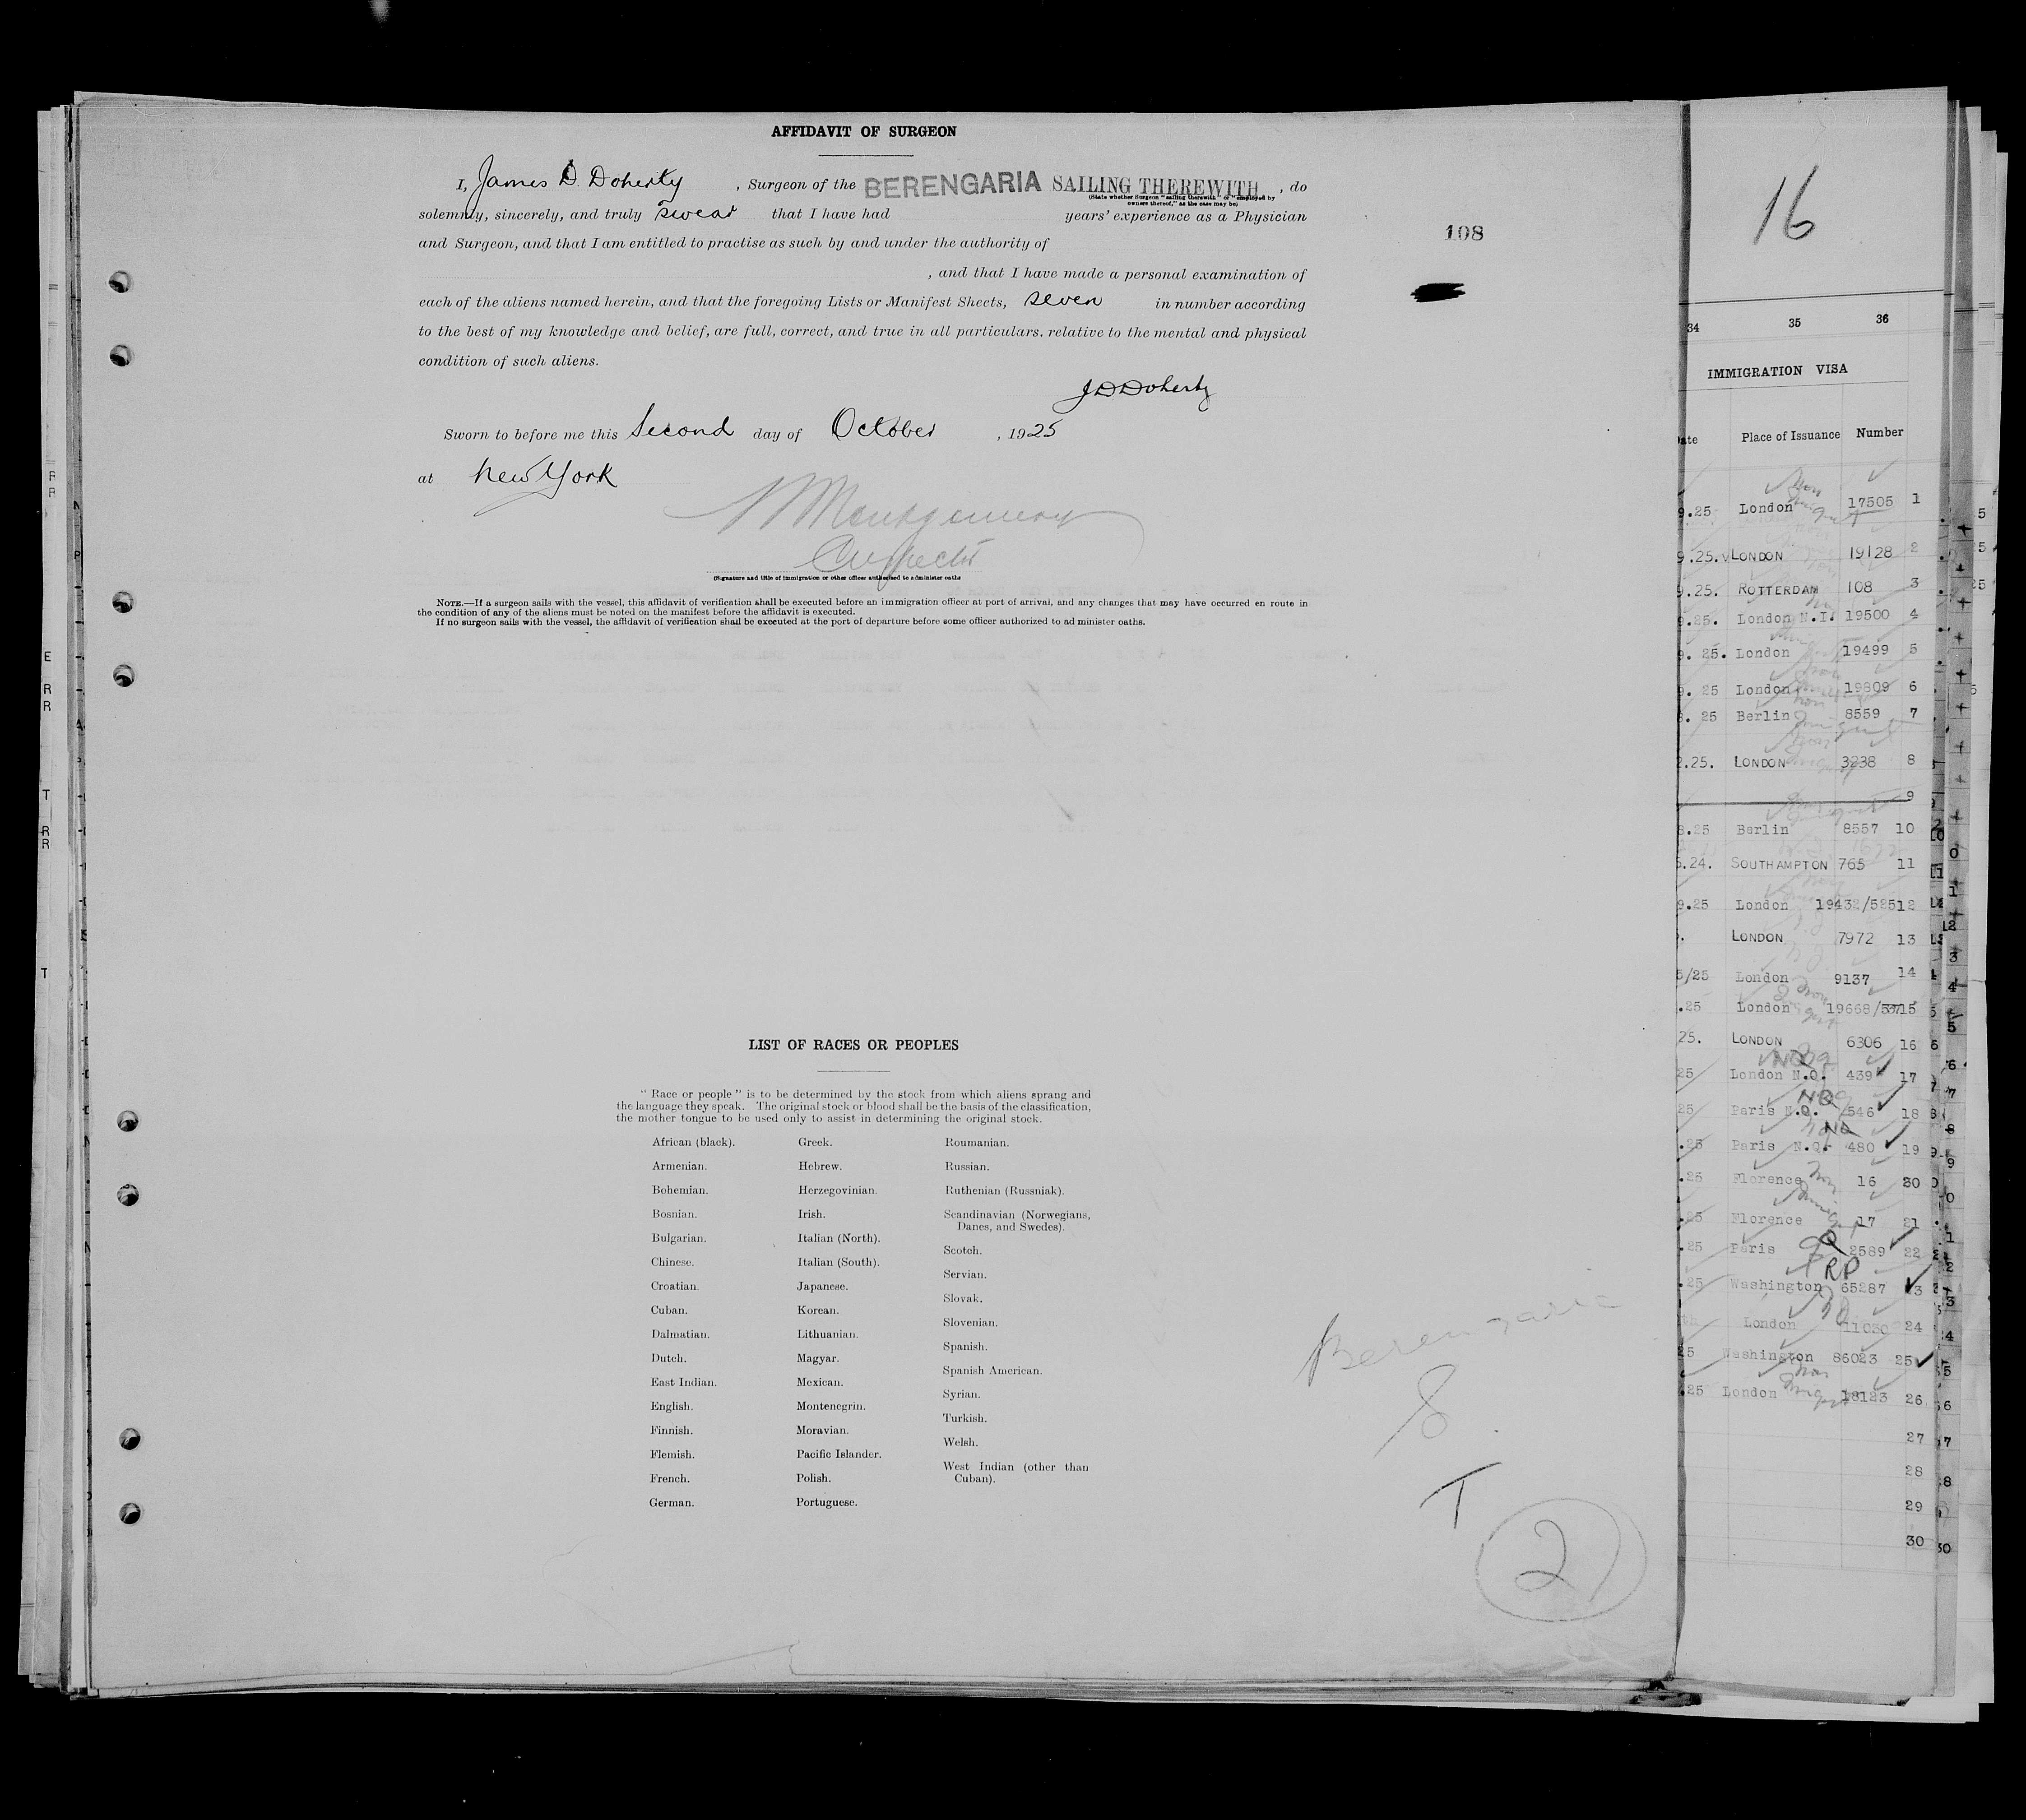 AFFIDAVIT OF SURGEON
I, James D. Doherty , Surgeon of the BERENGARIA SAILING THEREWITH , do
(State whether Surgeon "sailing therewith" or "employed by
owners thereof," as the case may be)
solemnly, sincerely, and truly swear that I have had years' experience as a Physician
and Surgeon, and that I am entitled to practise as such by and under the authority of
, and that I have made a personal examination of
each of the aliens named herein, and that the foregoing Lists or Manifest Sheets, seven in number according
to the best of my knowledge and belief, are full, correct, and true in all particulars. relative to the mental and physical
condition of such aliens.
J D Doherty
Sworn to before me this Second day of October , 1925
at New York
Montgomery
(Signature and title of immigration or other officer authorised to administer oaths
NOTE.—If a surgeon sails with the vessel, this affidavit of verification shall be executed before an immigration officer at port of arrival, and any changes that may have occurred en route in
the condition of any of the aliens must be noted on the manifest before the affidavit is executed.
If no surgeon sails with the vessel, the affidavit of verification shall be executed at the port of departure before some officer authorized to administer oaths.
108
LIST OF RACES OR PEOPLES
"Race or people" is to be determined by the stock from which aliens sprang and
the language they speak. The original stock or blood shall be the basis of the classification,
the mother tongue to be used only to assist in determining the original stock.
African (black).
Armenian.
Bohemian.
Bosnian.
Bulgarian.
Chinese.
Croatian.
Cuban.
Dalmatian.
Dutch.
East Indian.
English.
Finnish.
Flemish.
French.
German.
Greek.
Hebrew.
Herzegovinian.
Irish.
Italian (North).
Italian (South).
Japanese.
Korean.
Lithuanian.
Magyar.
Mexican.
Montenegrin.
Moravian.
Pacific Islander.
Polish.
Portuguese.
Roumanian.
Russian.
Ruthenian (Russniak).
Scandinavian (Norwegians,
Danes, and Swedes).
Scotch.
Servian.
Slovak.
Slovenian.
Spanish.
Spanish American.
Syrian.
Turkish.
Welsh.
West Indian (other than
Cuban).
Berengaria
8
T
2
16
34 35 36
IMMIGRATION VISA
Place of Issuance Number
9.25 London 17505 1
9.25. LONDON 19128 2
9.25. ROTTERDAM 108 3
9.25. London N.I. 19500 4
9. 25. London 19499 5
9. 25 London 19809 6
25 Berlin 8559 7
2.25. LONDON 3238 8
9
8.25 Berlin 8557 10
5.24. SOUTHAMPTON 765 11
9.25 London 19432/525 12
LONDON 7972 13
5/25 London 9137 14
.25 London 19668/ 15
25. LONDON 6306 16
25 London N.Q. 439 17
25 Paris N.Q. 546 18
.25 Paris N.Q. 480 19
.25 Florence 16 20
.25 Florence 17 21
.25 Paris 2589 22
RP
.25 Washington 65287 23
London 11030 24
25 Washington 86023 25
.25 London 18123 26
27
28
29
30